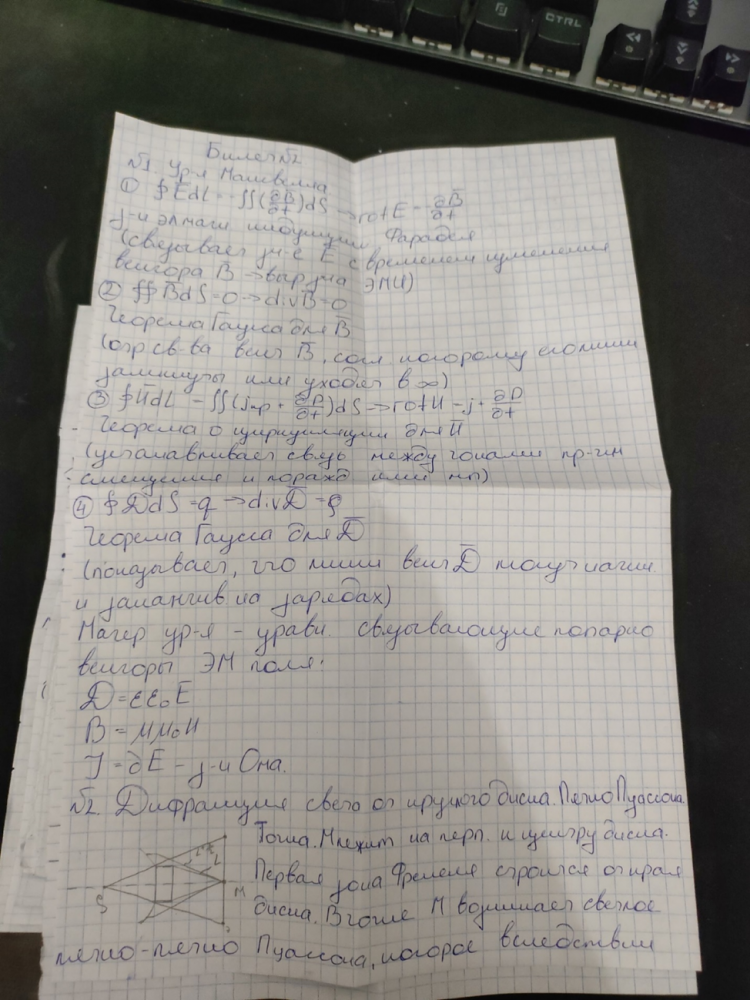 CTRL
Билет №2
№1. Ур-я Максвелла
① ∮ĒdL = -∬(∂B̄/∂t)dS → rotE = -∂B̄/∂t
з-н эл магн индукции Фарадея
(связывает зн-е Ē с временем изменения
вектора B̄ → выр для ЭМИ)
② ∯B̄dS = 0 → divB̄ = 0
Теорема Гаусса для B̄
(опр св-ва вект B̄, согл которому его линии
замкнуты или уходят в ∞)
③ ∮H̄dL = ∬(jпр + ∂D/∂t)dS → rotH = j + ∂D/∂t
Теорема о циркуляции для H̄
(устанавливает связь между токами пр-ти
смещения и поражд ими мп)
④ ∮D̄dS = q → divD̄ = ρ
Теорема Гаусса для D̄
(показывает, что линии вект D̄ могут начин
и заканчив на зарядах)
Матер ур-я - уравн. связывающие попарно
векторы ЭМ поля:
D̄ = εε₀Ē
B = μμ₀H
J = σE - з-н Ома.
№2. Дифракция света от круглого диска. Пятно Пуассона.
Точка М лежит на перп. к центру диска.
Первая зона Френеля строится от края
S M
диска. В точке М возникает светлое
пятно-пятно Пуассона, которое вследствии